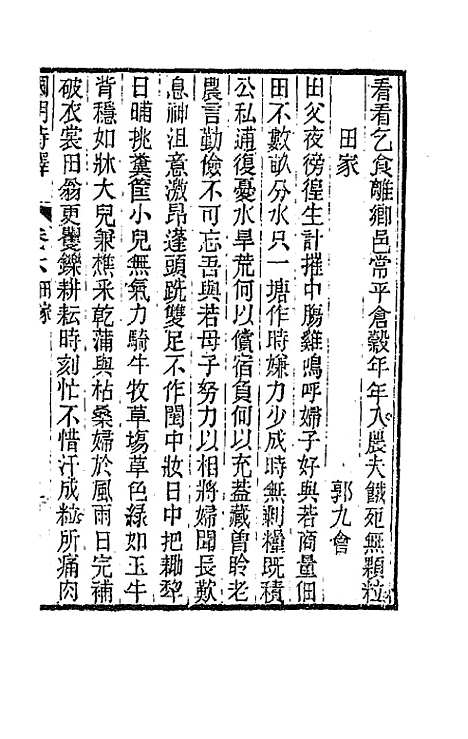 看看乞食離鄉邑常平倉穀年年入農夫餓死無顆粒
田家
郭九會
田父夜徬徨生計摧中腸雞鳴呼婦子好與若商量佃
田不數畝分水只一塘作時嫌力少成時無剩糧既積
公私逋復憂水旱荒何以償宿負何以充蓋藏曾聆老
農言勤儉不可忘吾與若母子努力以相將婦聞長歎
息神沮意激昂蓬頭跣雙足不作閨中妝日中把耡犂
日晡挑糞筐小兒無氣力騎牛牧草塲草色綠如玉牛
背穩如牀大兒兼樵采乾蒲與枯桑婦於風雨日完補
破衣裳田翁更矍鑠耕耘時刻忙不惜汗成粒所痛肉
國朝詩鐸
卷六 田家